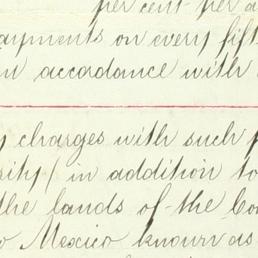 per cent per a
ayments on every fift
in accordance with
y charges with such p
rity) in addition to
the lands of the Co
o Mexico known as